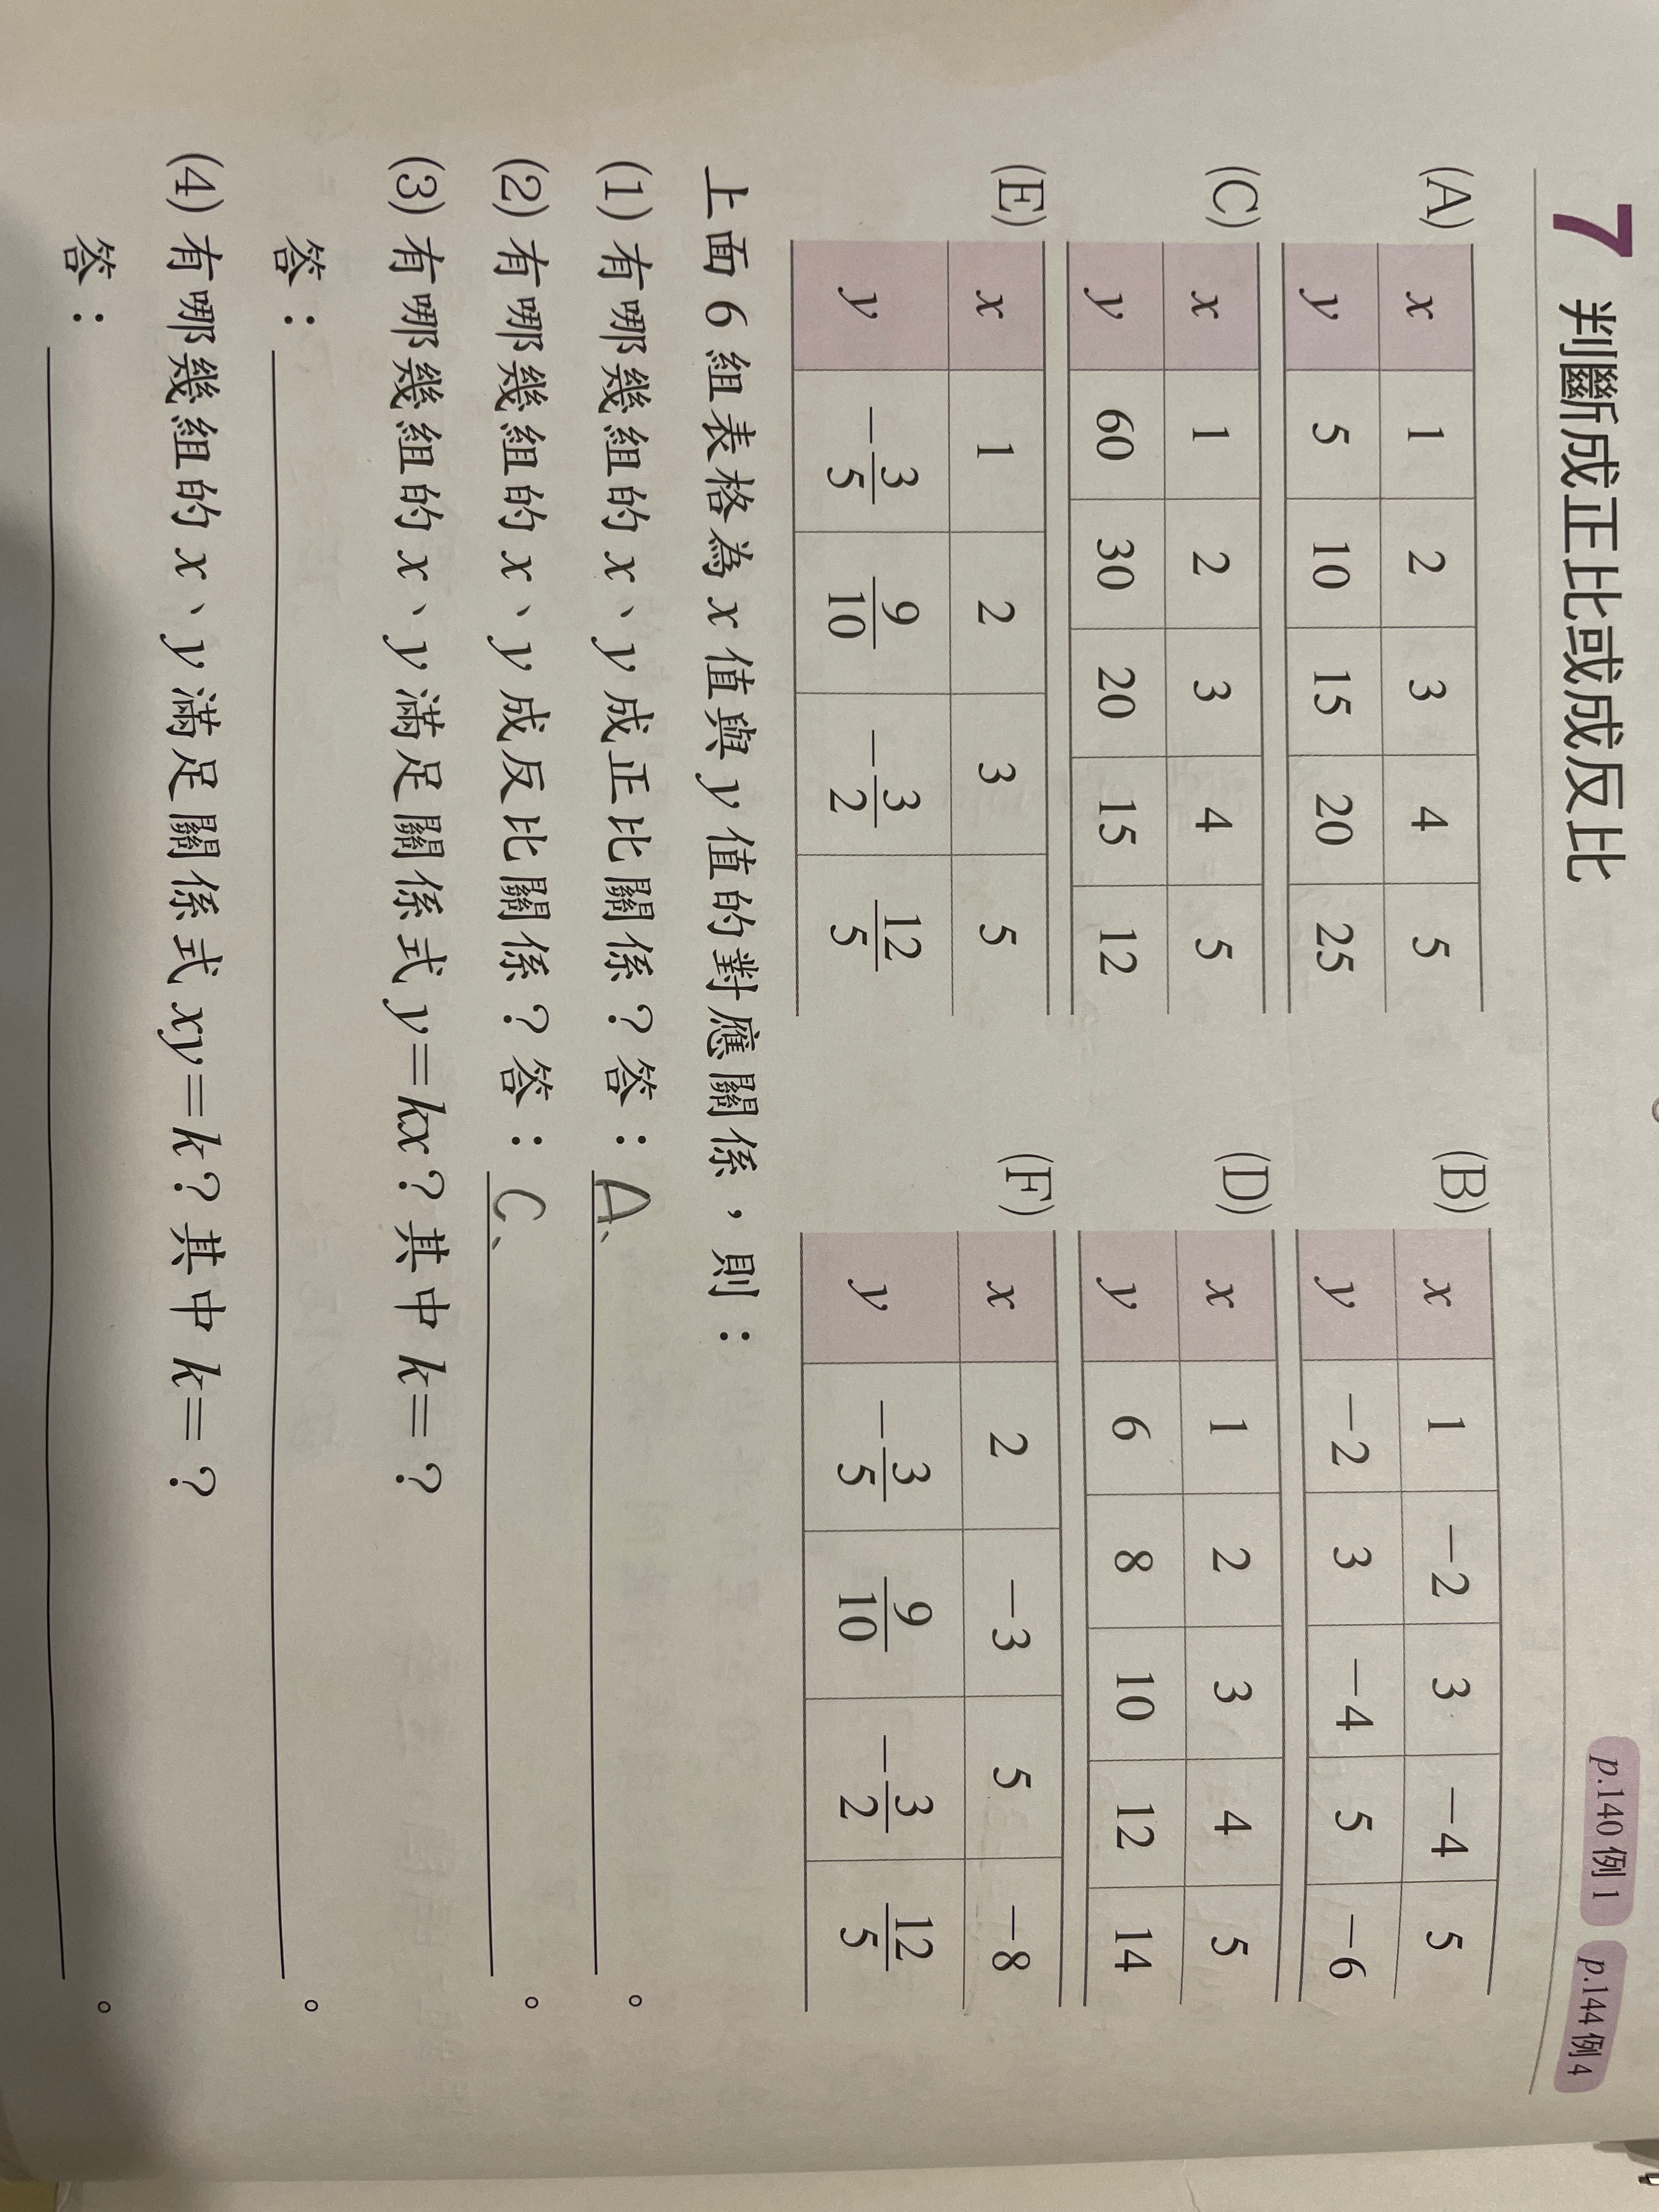 7 判斷成正比或成反比 p.140 例 1 p.144 例 4
(A) x 1 2 3 4 5
y 5 10 15 20 25
(B) x 1 −2 3 −4 5
y −2 3 −4 5 −6
(C) x 1 2 3 4 5
y 60 30 20 15 12
(D) x 1 2 3 4 5
y 6 8 10 12 14
(E) x 1 2 3 5
y −3/5 9/10 −3/2 12/5
(F) x 2 −3 5 −8
y −3/5 9/10 −3/2 12/5
上面 6 組表格為 x 值與 y 值的對應關係，則：
(1) 有哪幾組的 x、y 成正比關係？答：A、。
(2) 有哪幾組的 x、y 成反比關係？答：C、。
(3) 有哪幾組的 x、y 滿足關係式 y=kx？其中 k=？
答：。
(4) 有哪幾組的 x、y 滿足關係式 xy=k？其中 k=？
答：。